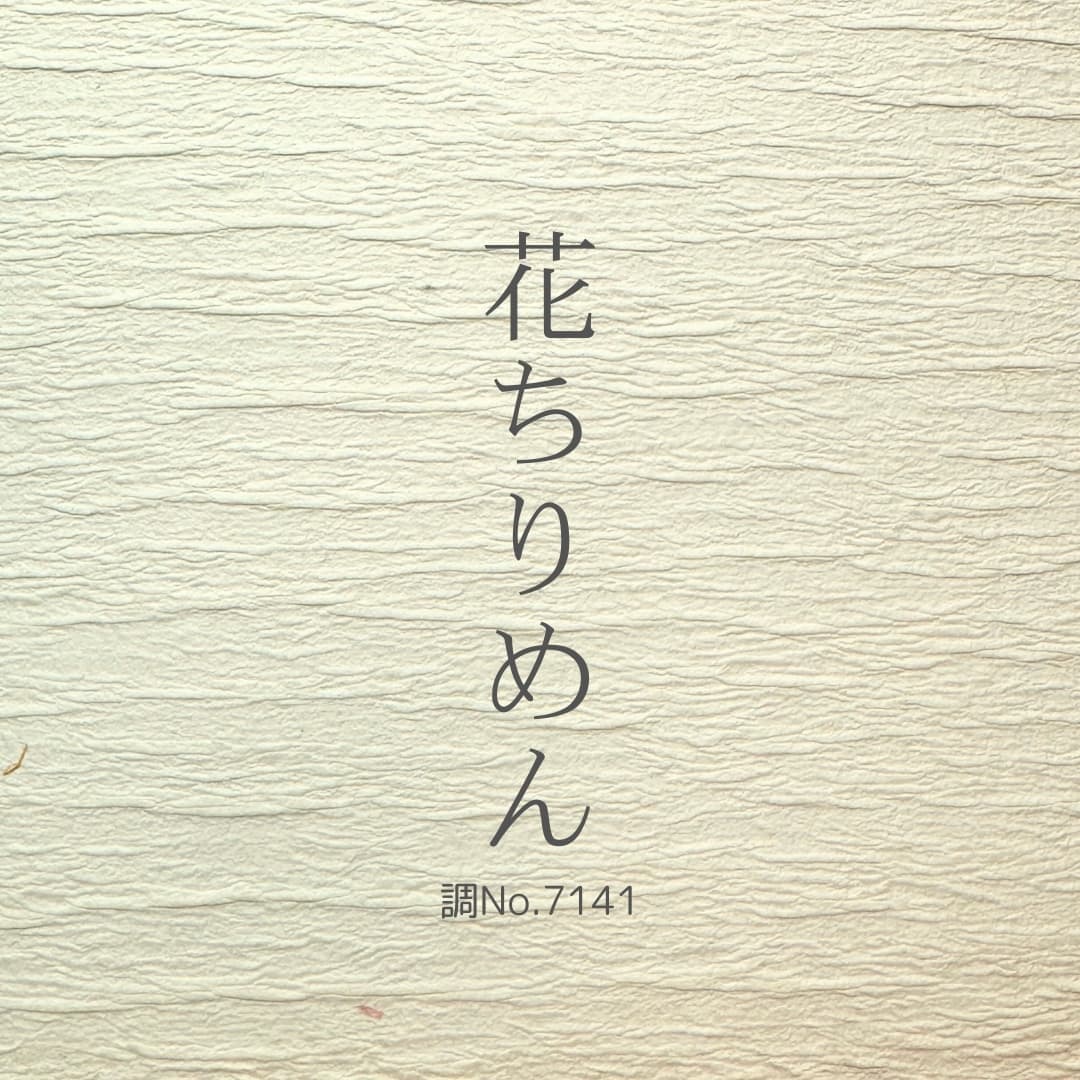 花ちりめん
調No.7141